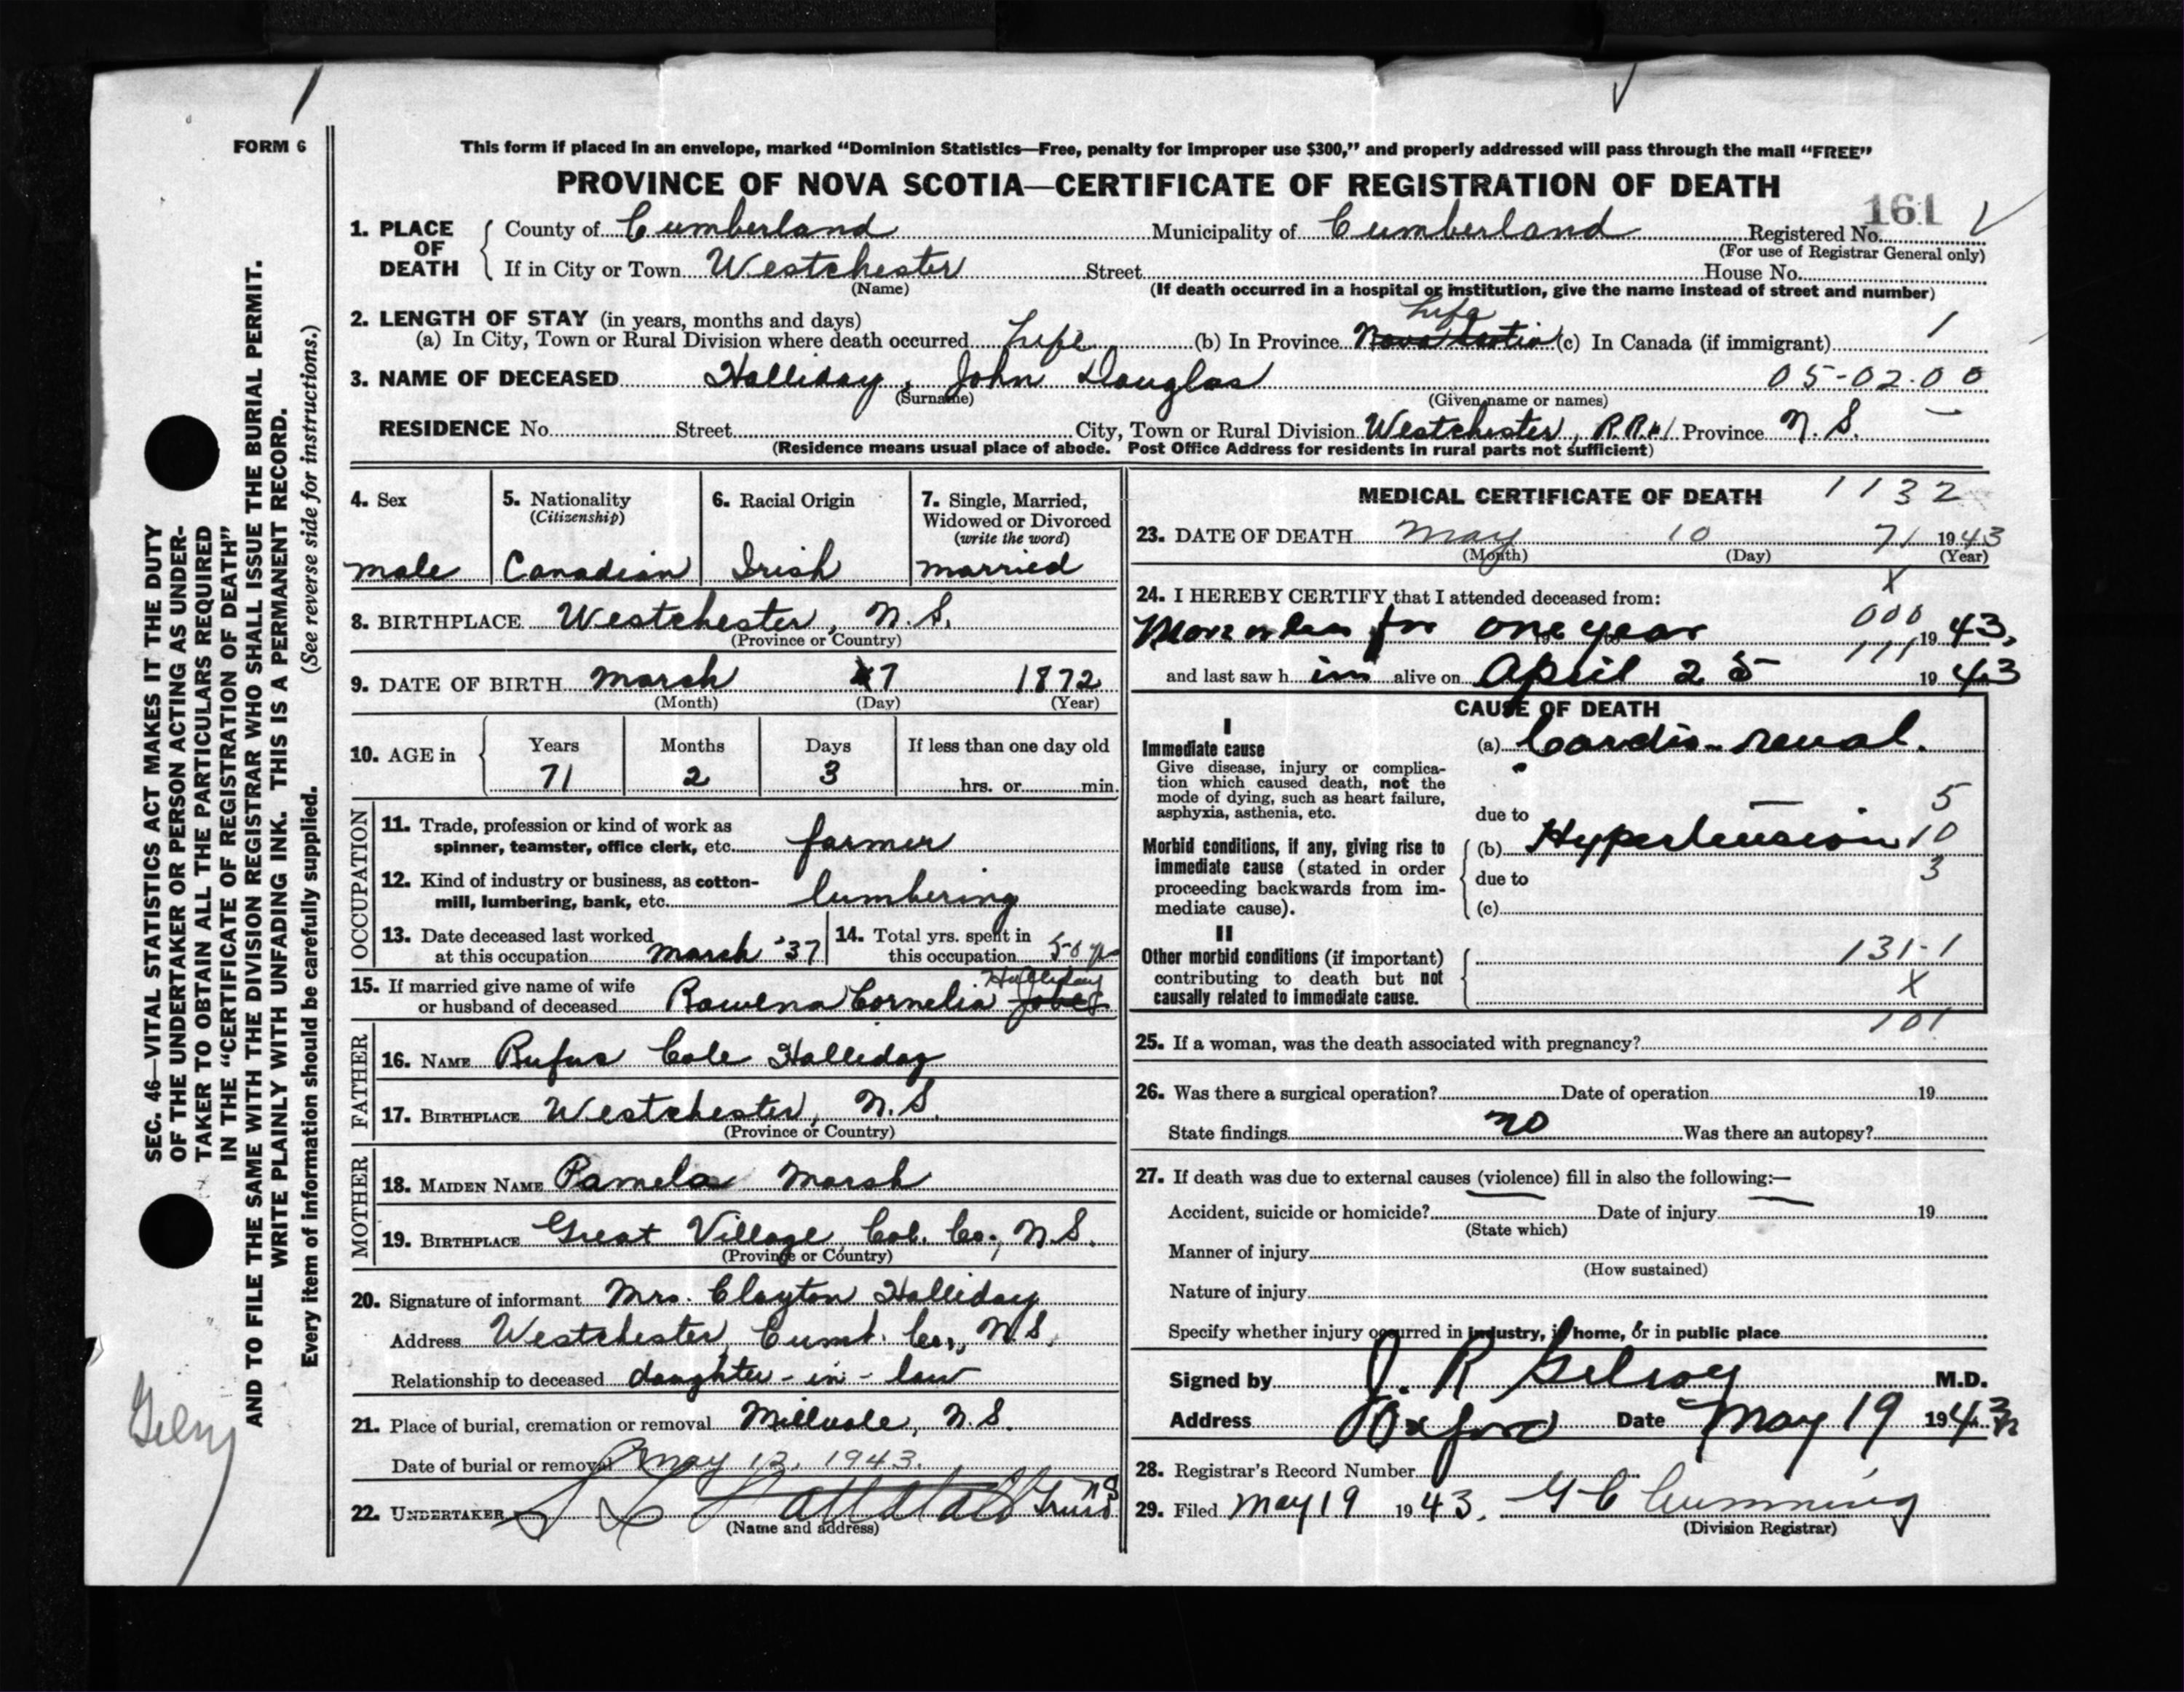 FORM 6
This form if placed in an envelope, marked “Dominion Statistics—Free, penalty for improper use $300,” and properly addressed will pass through the mail “FREE”
PROVINCE OF NOVA SCOTIA—CERTIFICATE OF REGISTRATION OF DEATH
161
1. PLACE OF DEATH County of Cumberland Municipality of Cumberland Registered No.
(For use of Registrar General only)
If in City or Town Westchester Street House No.
(Name) (If death occurred in a hospital or institution, give the name instead of street and number)
2. LENGTH OF STAY (in years, months and days) Life
(a) In City, Town or Rural Division where death occurred Life (b) In Province Nova Scotia (c) In Canada (if immigrant)
3. NAME OF DECEASED Halliday, John Douglas 05-02.00
(Surname) (Given name or names)
RESIDENCE No. Street City, Town or Rural Division Westchester, R.R.#1 Province N.S.
(Residence means usual place of abode. Post Office Address for residents in rural parts not sufficient)
4. Sex 5. Nationality 6. Racial Origin 7. Single, Married,
(Citizenship) Widowed or Divorced
(write the word)
male Canadian Irish married
8. BIRTHPLACE Westchester, N.S.
(Province or Country)
9. DATE OF BIRTH March 7 1872
(Month) (Day) (Year)
10. AGE in Years Months Days If less than one day old
71 2 3 hrs. or min.
OCCUPATION
11. Trade, profession or kind of work as
spinner, teamster, office clerk, etc. farmer
12. Kind of industry or business, as cotton-
mill, lumbering, bank, etc. lumbering
13. Date deceased last worked 14. Total yrs. spent in
at this occupation March '37 this occupation 50 yrs
15. If married give name of wife Halliday
or husband of deceased Rowena Cornelia
FATHER
16. NAME Rufus Cole Halliday
17. BIRTHPLACE Westchester, N.S.
(Province or Country)
MOTHER
18. MAIDEN NAME Pamela Marsh
19. BIRTHPLACE Great Village, Col. Co., N.S.
(Province or Country)
20. Signature of informant Mrs. Clayton Halliday
Address Westchester, Cumb. Co., N.S.
Relationship to deceased daughter-in-law
21. Place of burial, cremation or removal Millvale, N.S.
Date of burial or removal May 12, 1943.
22. UNDERTAKER
(Name and address)
MEDICAL CERTIFICATE OF DEATH 1132
23. DATE OF DEATH May 10 71 1943
(Month) (Day) (Year)
X
24. I HEREBY CERTIFY that I attended deceased from:
000
More or less for one year 19 43,
111
and last saw h im alive on April 25 19 43
CAUSE OF DEATH
I
Immediate cause (a) Cardio-renal.
Give disease, injury or complica-
tion which caused death, not the
mode of dying, such as heart failure,
asphyxia, asthenia, etc. due to 5
Morbid conditions, if any, giving rise to (b) Hypertension 10
immediate cause (stated in order due to 3
proceeding backwards from im-
mediate cause). (c)
II
Other morbid conditions (if important) 131-1
contributing to death but not X
causally related to immediate cause.
101
25. If a woman, was the death associated with pregnancy?
26. Was there a surgical operation? Date of operation 19
State findings no Was there an autopsy?
27. If death was due to external causes (violence) fill in also the following:—
Accident, suicide or homicide? Date of injury 19
(State which)
Manner of injury
(How sustained)
Nature of injury
Specify whether injury occurred in industry, in home, or in public place
Signed by J. R. Gilroy M.D.
Address Oxford Date May 19 1943
28. Registrar's Record Number
29. Filed May 19 1943. G C Cumming
(Division Registrar)
SEC. 46—VITAL STATISTICS ACT MAKES IT THE DUTY
OF THE UNDERTAKER OR PERSON ACTING AS UNDER-
TAKER TO OBTAIN ALL THE PARTICULARS REQUIRED
IN THE “CERTIFICATE OF REGISTRATION OF DEATH”
AND TO FILE THE SAME WITH THE DIVISION REGISTRAR WHO SHALL ISSUE THE BURIAL PERMIT.
WRITE PLAINLY WITH UNFADING INK. THIS IS A PERMANENT RECORD.
Every item of information should be carefully supplied. (See reverse side for instructions.)